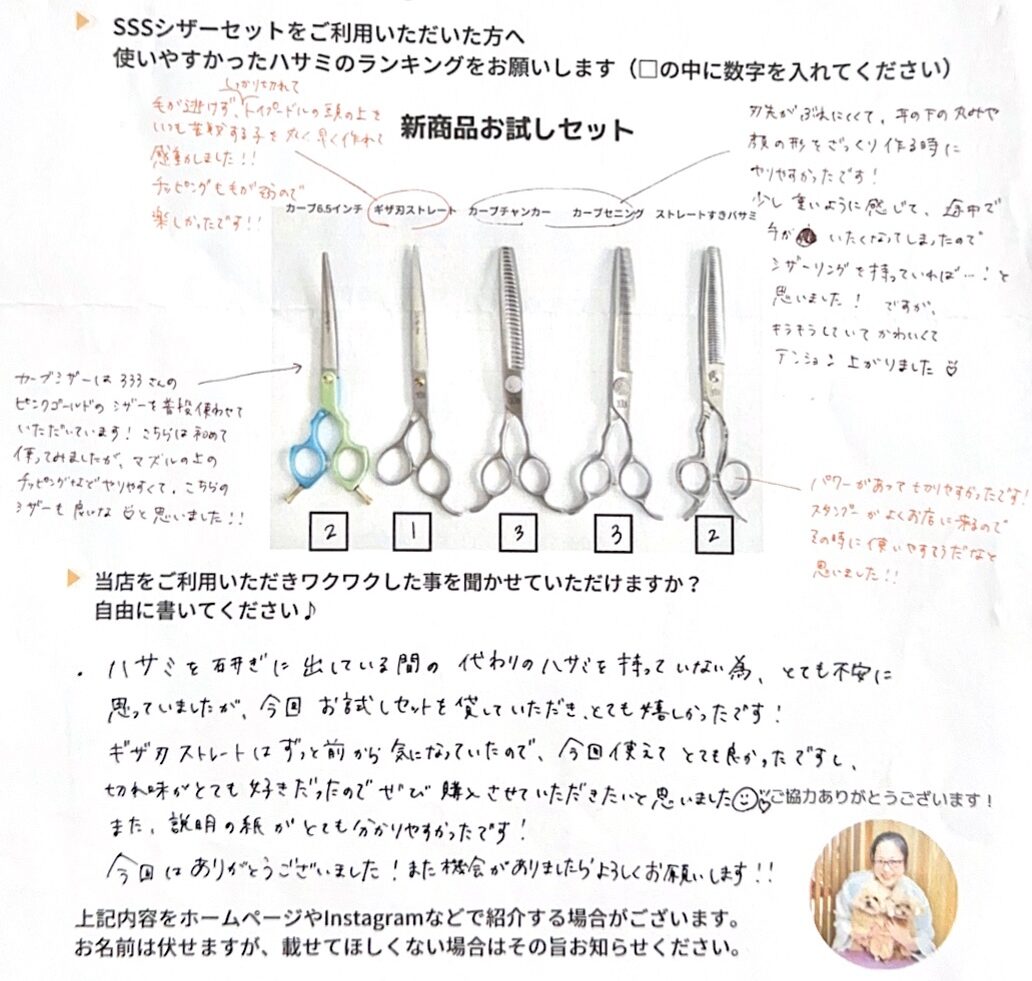 SSSシザーセットをご利用いただいた方へ
使いやすかったハサミのランキングをお願いします（□の中に数字を入れてください）
しっかり切れて
毛が逃げず、トイプードルの頭の上を
いつも苦戦する子を丸く早く作れて
感動しました!!
チッピングも毛が
楽しかったです!!
新商品お試しセット
刃先がぶれにくくて、耳の下の丸みや
顔の形をざっくり作る時に
やりやすかったです!
少し重いように感じて、途中で
手が いたくなってしまったので
シザーリングを持っていれば…!と
思いました! ですが、
キラキラしていてかわいくて
テンション上がりました
カーブ6.5インチ ギザ刃ストレート カーブチャンカー カーブセニング ストレートすきバサミ
カーブシザーは333さんの
ピンクゴールドのシザーを普段使わせて
いただいています! こちらは初めて
使ってみましたが、マズルの上の
チッピングなどやりやすくて、こちらの
シザーも良いな と思いました!!
パワーがあってもやりやすかったです!
スタンプーがよくお店に来るので
その時に使いやすそうだなと
思いました!!
2 1 3 3 2
当店をご利用いただきワクワクした事を聞かせていただけますか？
自由に書いてください♪
・ハサミを研ぎに出している間の代わりのハサミを持っていない為、とても不安に
思っていましたが、今回お試しセットを貸していただき、とても嬉しかったです!
ギザ刃ストレートはずっと前から気になっていたので、今回使えてとても良かったですし、
切れ味がとても好きだったのでぜひ購入させていただきたいと思いました
ご協力ありがとうございます！
また、説明の紙がとても分かりやすかったです!
今回はありがとうございました! また機会がありましたらよろしくお願いします!!
上記内容をホームページやInstagramなどで紹介する場合がございます。
お名前は伏せますが、載せてほしくない場合はその旨お知らせください。